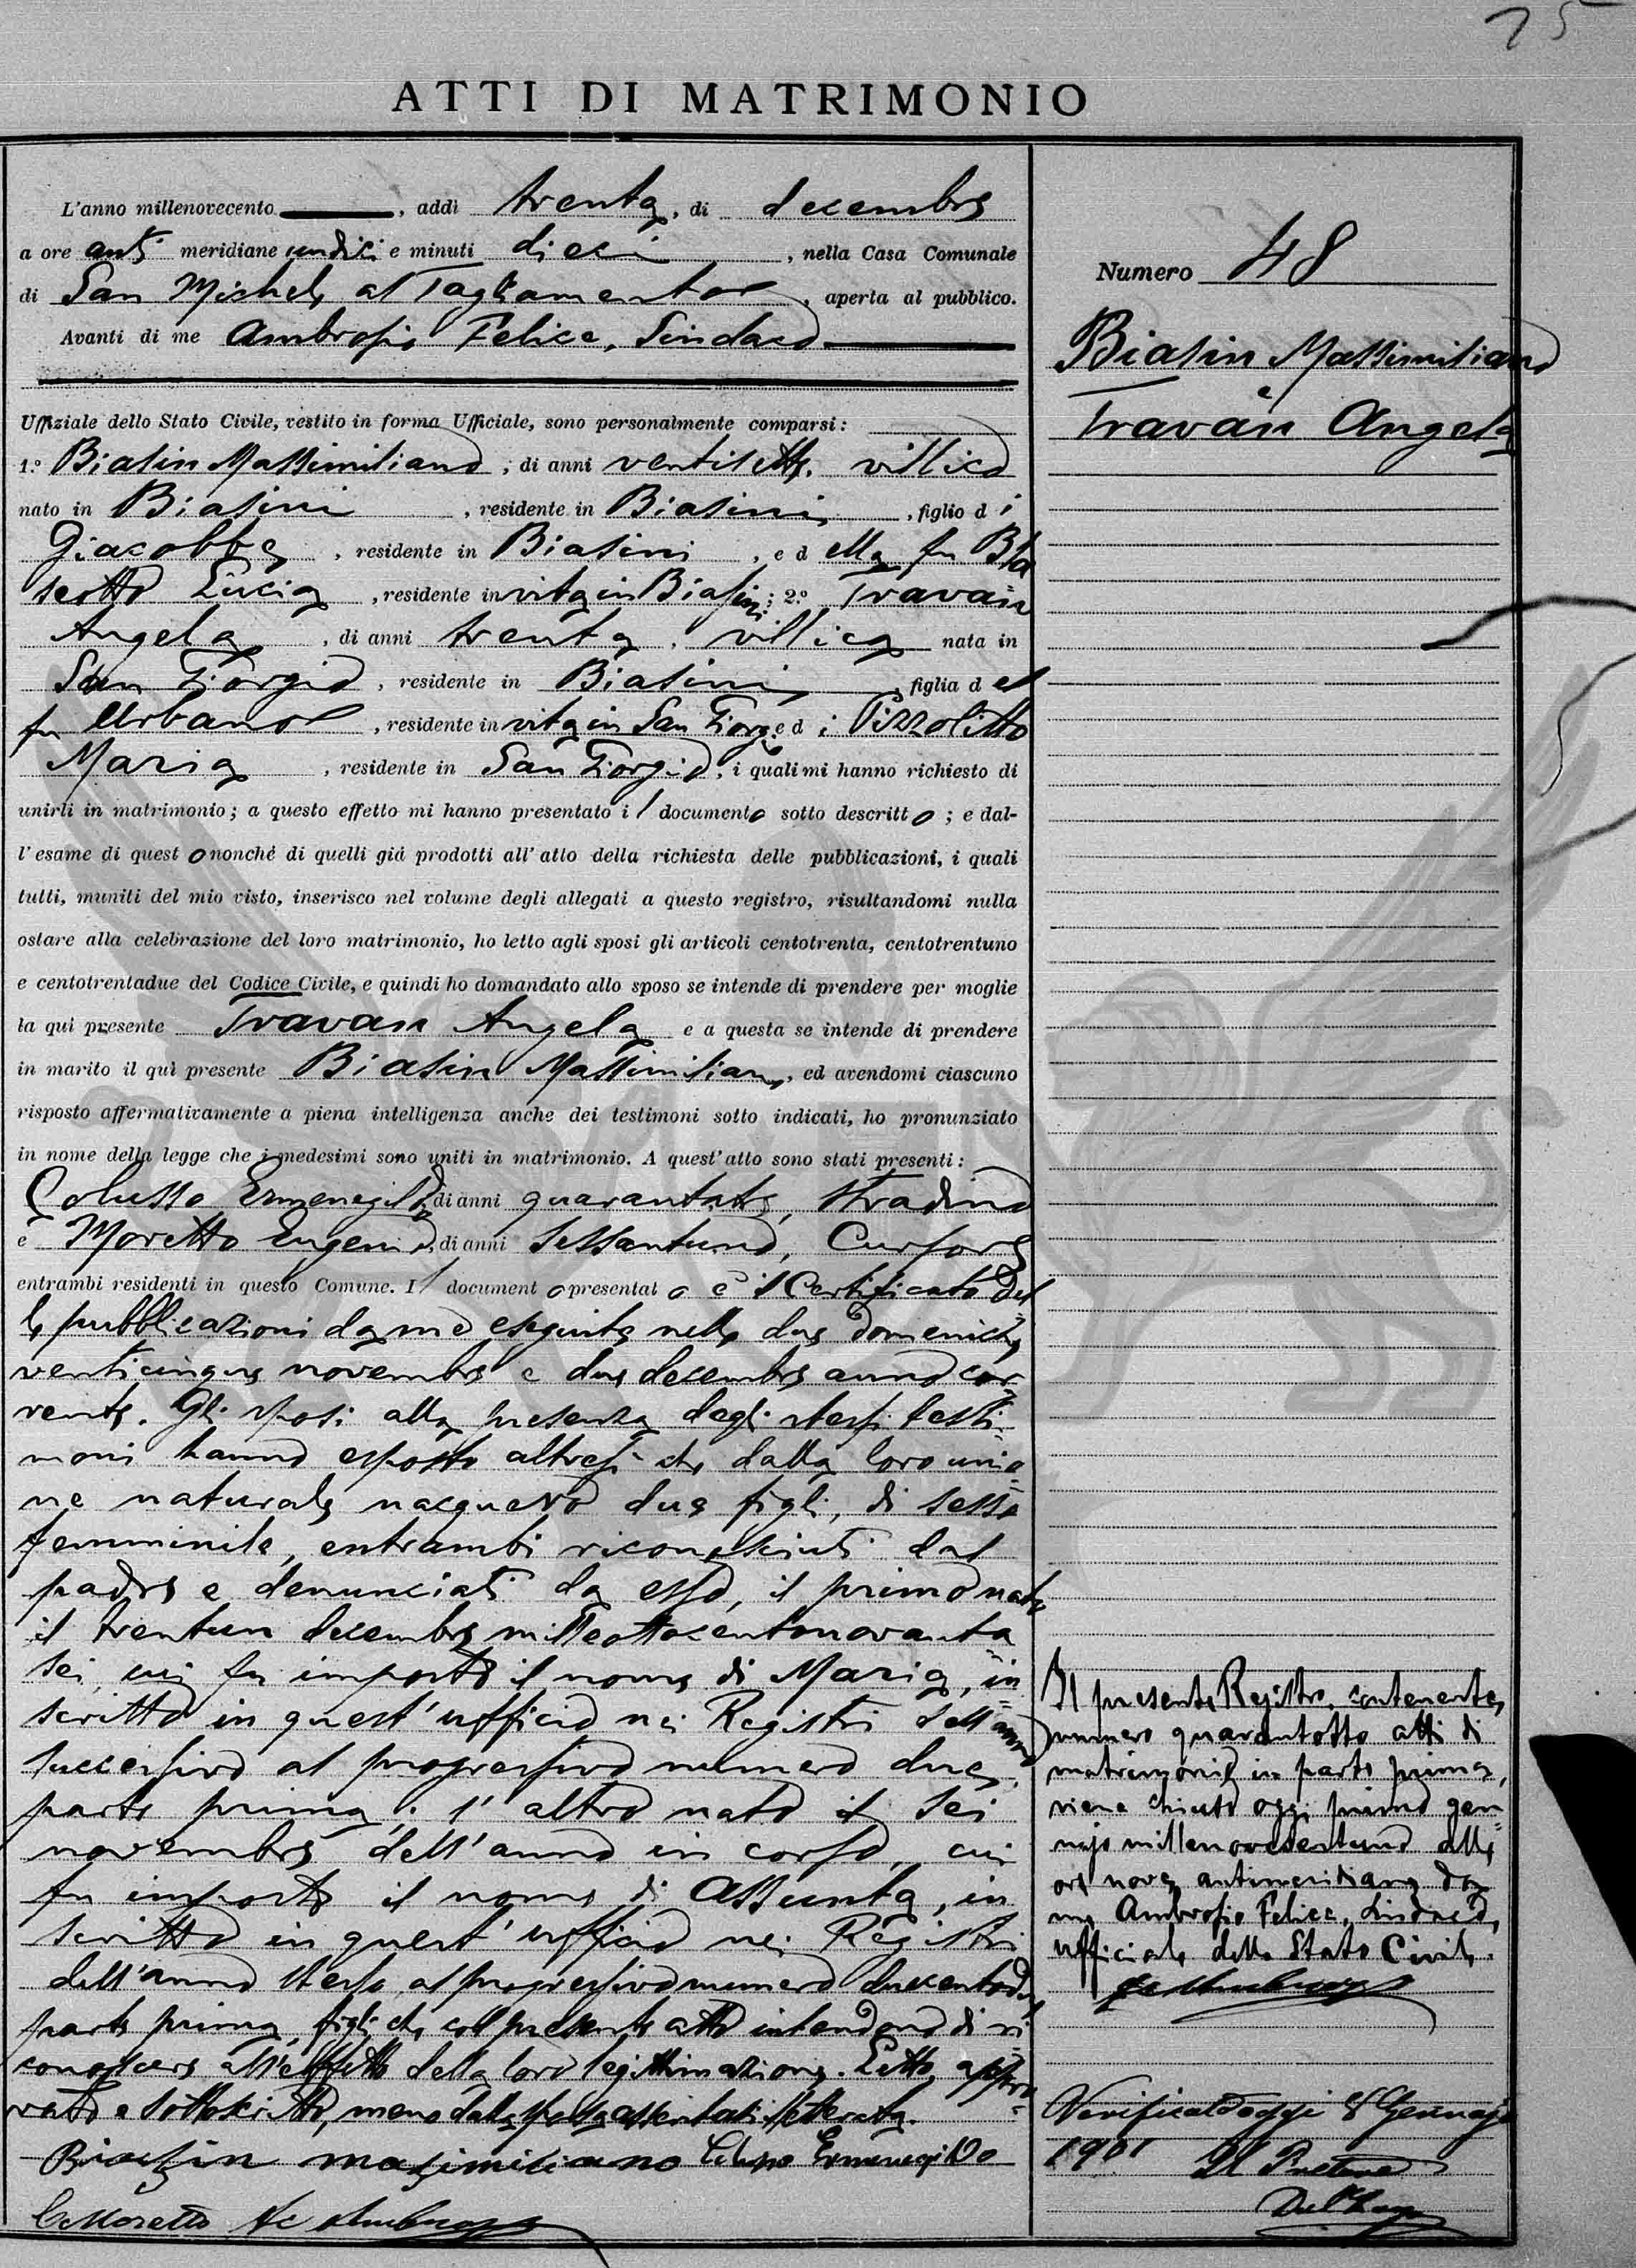 75
ATTI DI MATRIMONIO
L'anno millenovecento, addì trenta, di decembre
a ore anti meridiane undici e minuti dieci, nella Casa Comunale
di San Michele al Tagliamento, aperta al pubblico.
Avanti di me Ambrosio Felice, Sindaco
Uffiziale dello Stato Civile, vestito in forma Ufficiale, sono personalmente comparsi:
1.° Biasin Massimiliano, di anni ventisette, villico
nato in Biasini, residente in Biasini, figlio di
Giacobbe, residente in Biasini, e della fu Bia
sotto Lucia, residente in vita in Biasini; 2.° Travain
Angela, di anni trenta, villica nata in
San Giorgio, residente in Biasini, figlia del
fu Urbano, residente in vita in San Giorgio e di Pizzolitto
Maria, residente in San Giorgio, i quali mi hanno richiesto di
unirli in matrimonio; a questo effetto mi hanno presentato il documento sotto descritto; e dal-
l'esame di questo nonchè di quelli già prodotti all'atto della richiesta delle pubblicazioni, i quali
tutti, muniti del mio visto, inserisco nel volume degli allegati a questo registro, risultandomi nulla
ostare alla celebrazione del loro matrimonio, ho letto agli sposi gli articoli centotrenta, centotrentuno
e centotrentadue del Codice Civile, e quindi ho domandato allo sposo se intende di prendere per moglie
la quì presente Travain Angela e a questa se intende di prendere
in marito il quì presente Biasin Massimiliano, ed avendomi ciascuno
risposto affermativamente a piena intelligenza anche dei testimoni sotto indicati, ho pronunziato
in nome della legge che i medesimi sono uniti in matrimonio. A quest'atto sono stati presenti:
Colusso Ermenegildo, di anni quarantatre, stradino
e Moretto Eugenio, di anni sessantuno, Cursore
entrambi residenti in questo Comune. Il documento presentato è il Certificato del
le pubblicazioni da me eseguite nelle due domeniche
venticinque novembre e due decembre anno cor
rente. Gli sposi alla presenza degli stessi testi
moni hanno esposto altresì che dalla loro unio
ne naturale nacquero due figli, di sesso
femminile, entrambi riconosciuti dal
padre e denunciati da esso, il primo nato
il trentun decembre milleottocentonovanta
sei, cui fu imposto il nome di Maria, in
scritto in quest'ufficio nei Registri dell'anno
successivo al progressivo numero due,
parte prima; l'altro nato il sei
novembre dell'anno in corso, cui
fu imposto il nome di Assunta, in
scritto in quest'ufficio nei Registri
dell'anno stesso, al progressivo numero duecentodue
parte prima, figli che col presente atto intendono di ri
conoscere all'effetto della loro legittimazione. Letto, appro
vato e sottoscritto, meno dalla sposa essendo illetterata.
Biasin Masimiliano Coluso Ermenegildo
E. Moretto Fe Ambrosio
Numero 48
Biasin Massimiliano
e
Travain Angela
Il presente Registro, contenente
numero quarantotto atti di
matrimonio in parte prima,
viene chiuso oggi primo gen
najo millenovecentuno alle
ore nove antimeridiane da
me Ambrosio Felice, Sindaco,
Ufficiale dello Stato Civile.
Fe Ambrosio
Verificato oggi 8 Gennajo
1901 Il Pretore